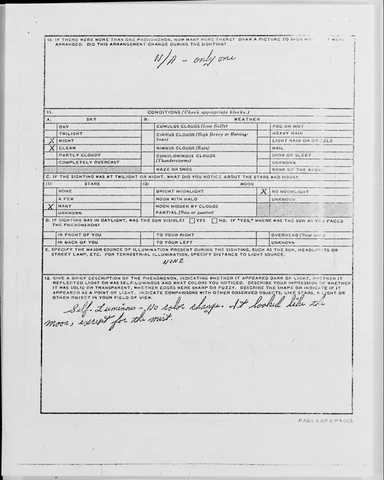 10. IF THERE WERE MORE THAN ONE PHENOMENON, HOW MANY WERE THERE? DRAW A PICTURE TO SHOW
ARRANGED. DID THIS ARRANGEMENT CHANGE DURING THE SIGHTING?
N/A - only one
11. CONDITIONS (Check appropriate blocks.)
A. SKY B. WEATHER
DAY CUMULUS CLOUDS (Low fluffy) FOG OR MIST
TWILIGHT CIRRUS CLOUDS (High fleecy or Herring-bone) HEAVY RAIN
X NIGHT LIGHT RAIN OR DRIZZLE
X CLEAR NIMBUS CLOUDS (Rain) HAIL
PARTLY CLOUDY CUMULONIMBUS CLOUDS (Thunderstorms) SNOW OR SLEET
COMPLETELY OVERCAST UNKNOWN
HAZE OR SMOG NONE OF THE ABOVE
C. IF THE SIGHTING WAS AT TWILIGHT OR NIGHT, WHAT DID YOU NOTICE ABOUT THE STARS AND MOON?
(1) STARS (2) MOON
NONE BRIGHT MOONLIGHT X NO MOONLIGHT
A FEW MOON WITH HALO UNKNOWN
X MANY MOON HIDDEN BY CLOUDS
UNKNOWN PARTIAL (New or quarter)
D. IF SIGHTING WAS IN DAYLIGHT, WAS THE SUN VISIBLE? YES NO. IF "YES," WHERE WAS THE SUN AS YOU FACED
THE PHENOMENON?
IN FRONT OF YOU TO YOUR RIGHT OVERHEAD (Near noon)
IN BACK OF YOU TO YOUR LEFT UNKNOWN
E. SPECIFY THE MAJOR SOURCE OF ILLUMINATION PRESENT DURING THE SIGHTING, SUCH AS THE SUN, HEADLIGHTS OR
STREET LAMP, ETC. FOR TERRESTRIAL ILLUMINATION, SPECIFY DISTANCE TO LIGHT SOURCE.
NONE
12. GIVE A BRIEF DESCRIPTION OF THE PHENOMENON, INDICATING WHETHER IT APPEARED DARK OR LIGHT, WHETHER IT
REFLECTED LIGHT OR WAS SELF-LUMINOUS AND WHAT COLORS YOU NOTICED. DESCRIBE YOUR IMPRESSION OF WHETHER
IT WAS SOLID OR TRANSPARENT, WHETHER EDGES WERE SHARP OR FUZZY. DESCRIBE THE SHAPE OR INDICATE IF IT
APPEARED AS A POINT OF LIGHT. INDICATE COMPARISONS WITH OTHER OBSERVED OBJECTS, LIKE STARS, A LIGHT OR
OTHER OBJECT IN YOUR FIELD OF VIEW.
Self-Luminous - No color change. It looked like the
moon, except for the mist.
PAGE OF PAGES